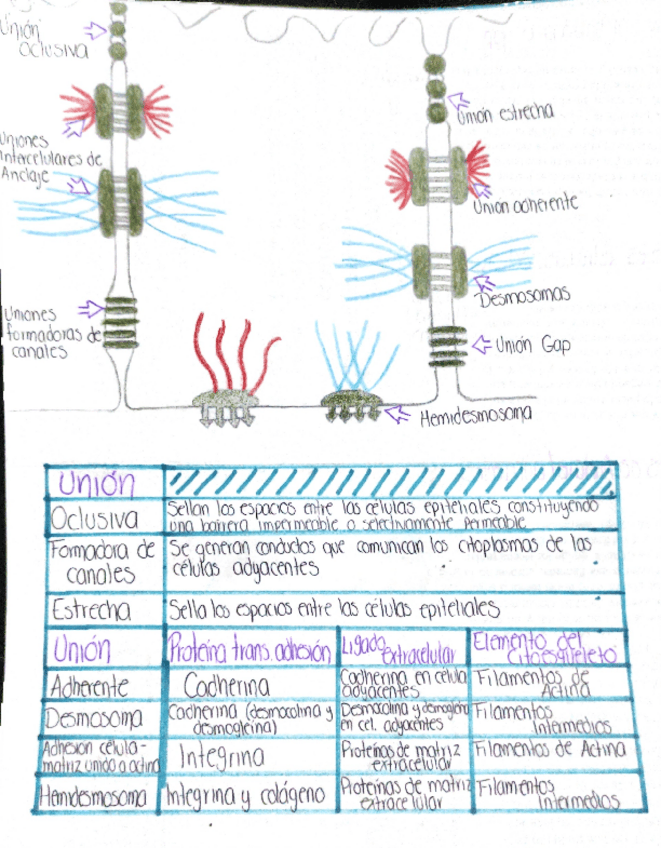 Unión
oclusiva
Unión estrecha
Uniones
Intercelulares de
Anclaje
Unión adherente
Desmosomas
Uniones
formadoras de
canales
Unión Gap
Hemidesmosoma
Unión
Oclusiva
Sellan los espacios entre las células epiteliales constituyendo
una barrera impermeable o selectivamente permeable
Formadora de
canales
Se generan conductos que comunican los citoplasmas de las
células adyacentes
Estrecha
Sella los espacios entre las células epiteliales
Unión
Proteína trans. adhesión
Ligado extracelular
Elemento del
citoesqueleto
Adherente
Cadherina
Cadherina en célula
adyacentes
Filamentos de
Actina
Desmosoma
Cadherina (desmocolina y
desmogleina)
Desmocolina y desmogleina
en cel. adyacentes
Filamentos
Intermedios
Adhesión célula-
matriz unida a actina
Integrina
Proteínas de matriz
extracelular
Filamentos de Actina
Hemidesmosoma
Integrina y colágeno
Proteínas de matriz
extracelular
Filamentos
Intermedios